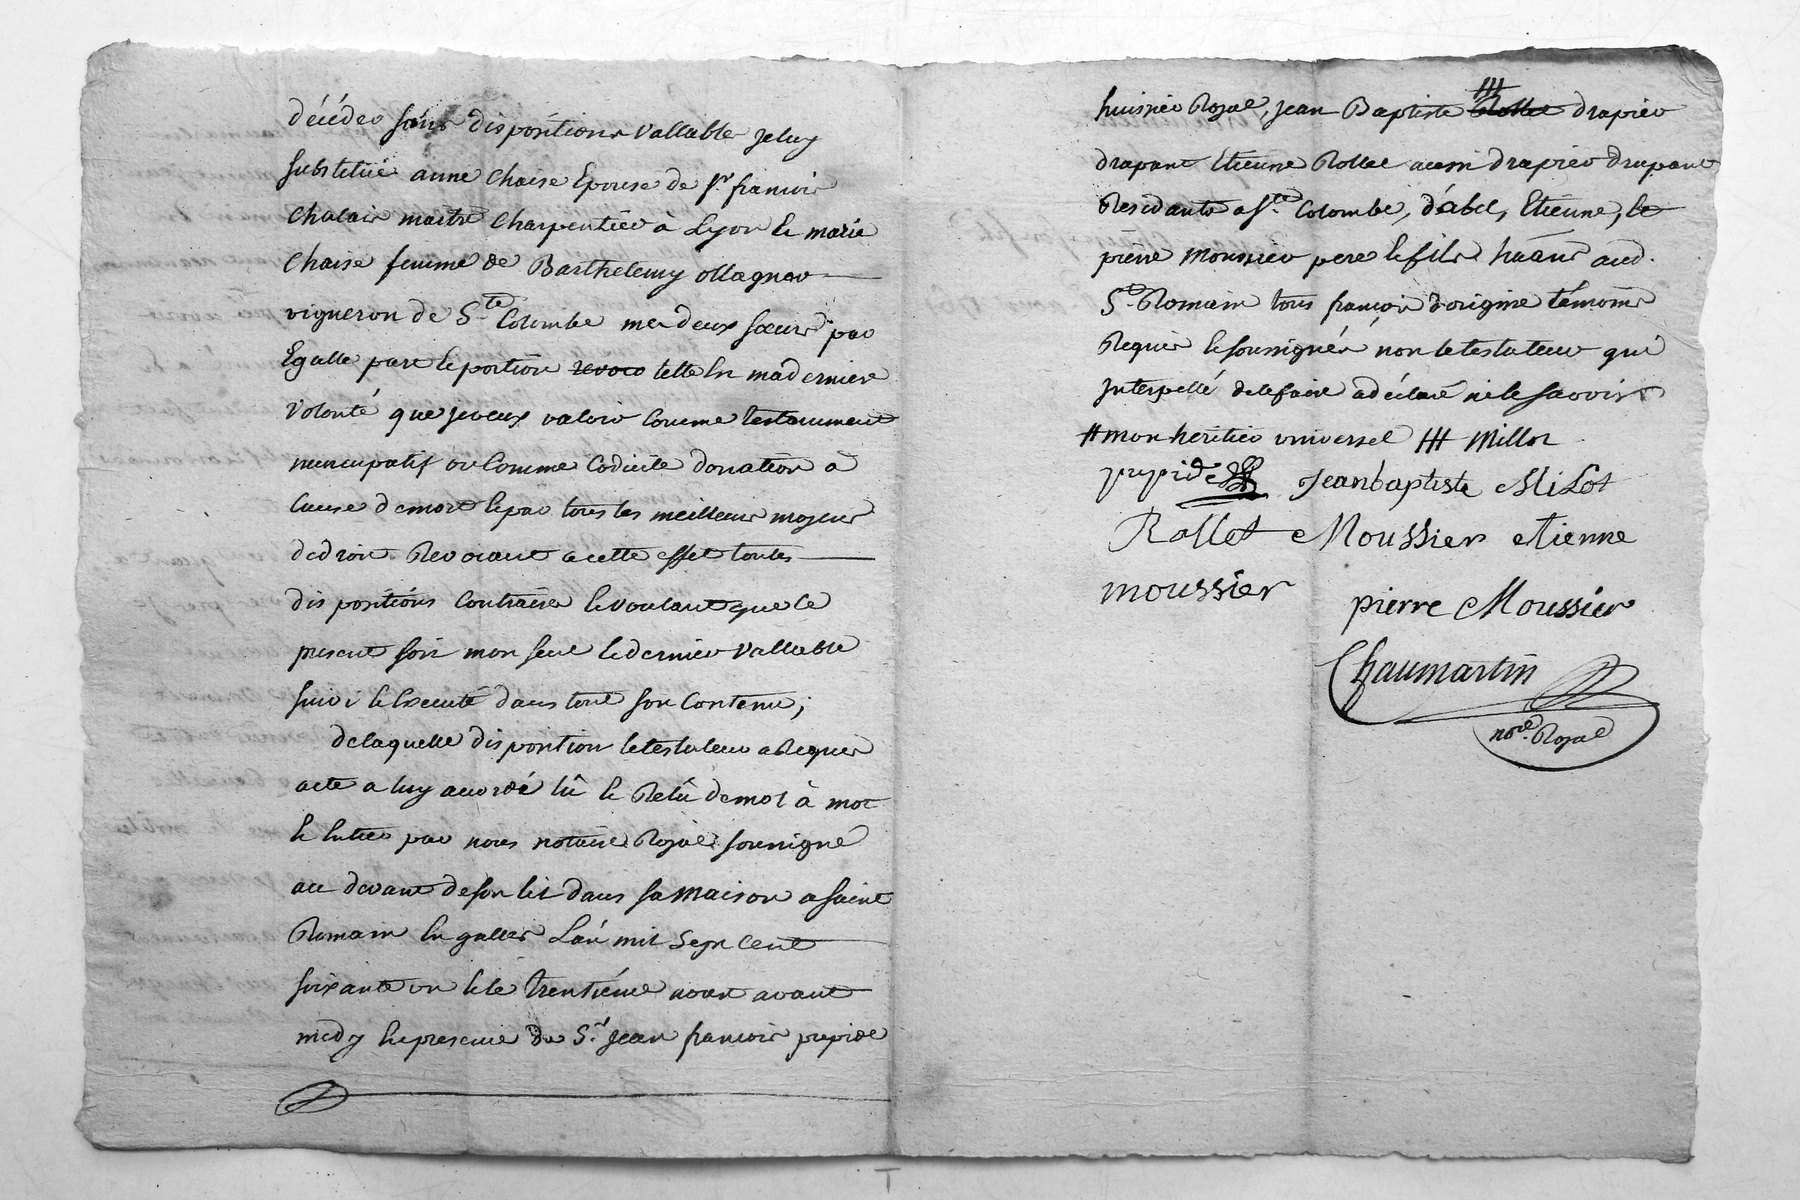 décédés sans dispositions vallable je luy
substitüe anne Chaise Epouse de Sr. francois
Chalais maitre Charpentier à Lyon & marie
Chaise femme de Barthelemy ollagner
vigneron de Ste. Colombe mes deux sœurs par
Egalle part & portion revoco telle En ma derniere
volonté que je veux valoir Comme testamment
nuncupatif ou Comme Codicile donation à
Cause de mort & par tous les meilleurs moyens
de droit Revocant a cette effet toutes
dispositions Contraires & voulant que le
present soit mon seul & dernier vallable
suivi & Executé dans tout son Contenu;
de laquelle disposition le testateur a Requis
acte a luy accordé lû & Relû de mot à mot
& Entier par nous notaire Royal soussigné
au devant de son lit dans sa maison a saint
Romain En galles L'an mil Sept Cent
soixante un & le trentiéme aoust avant
midy En presence de Sr. Jean francois prepide
huissier Royal, Jean Baptiste Rollet drapier
drapant Etienne Rollet aussi drapier drapant
Residants a Ste. Colombe, d'abel, Etienne, &
pierre Moussier pere & fils hãants aud.
St. Romain tous françois d'origine témoins
Requis & soussignés non le testateur qui
Interpellé de le faire a déclaré ne le sçavoir
# mon heritier universel ## Millot
prepide Jean baptiste Milot
Rollet Moussier etienne
moussier pierre Moussier
Chaumartin
nore. Royal